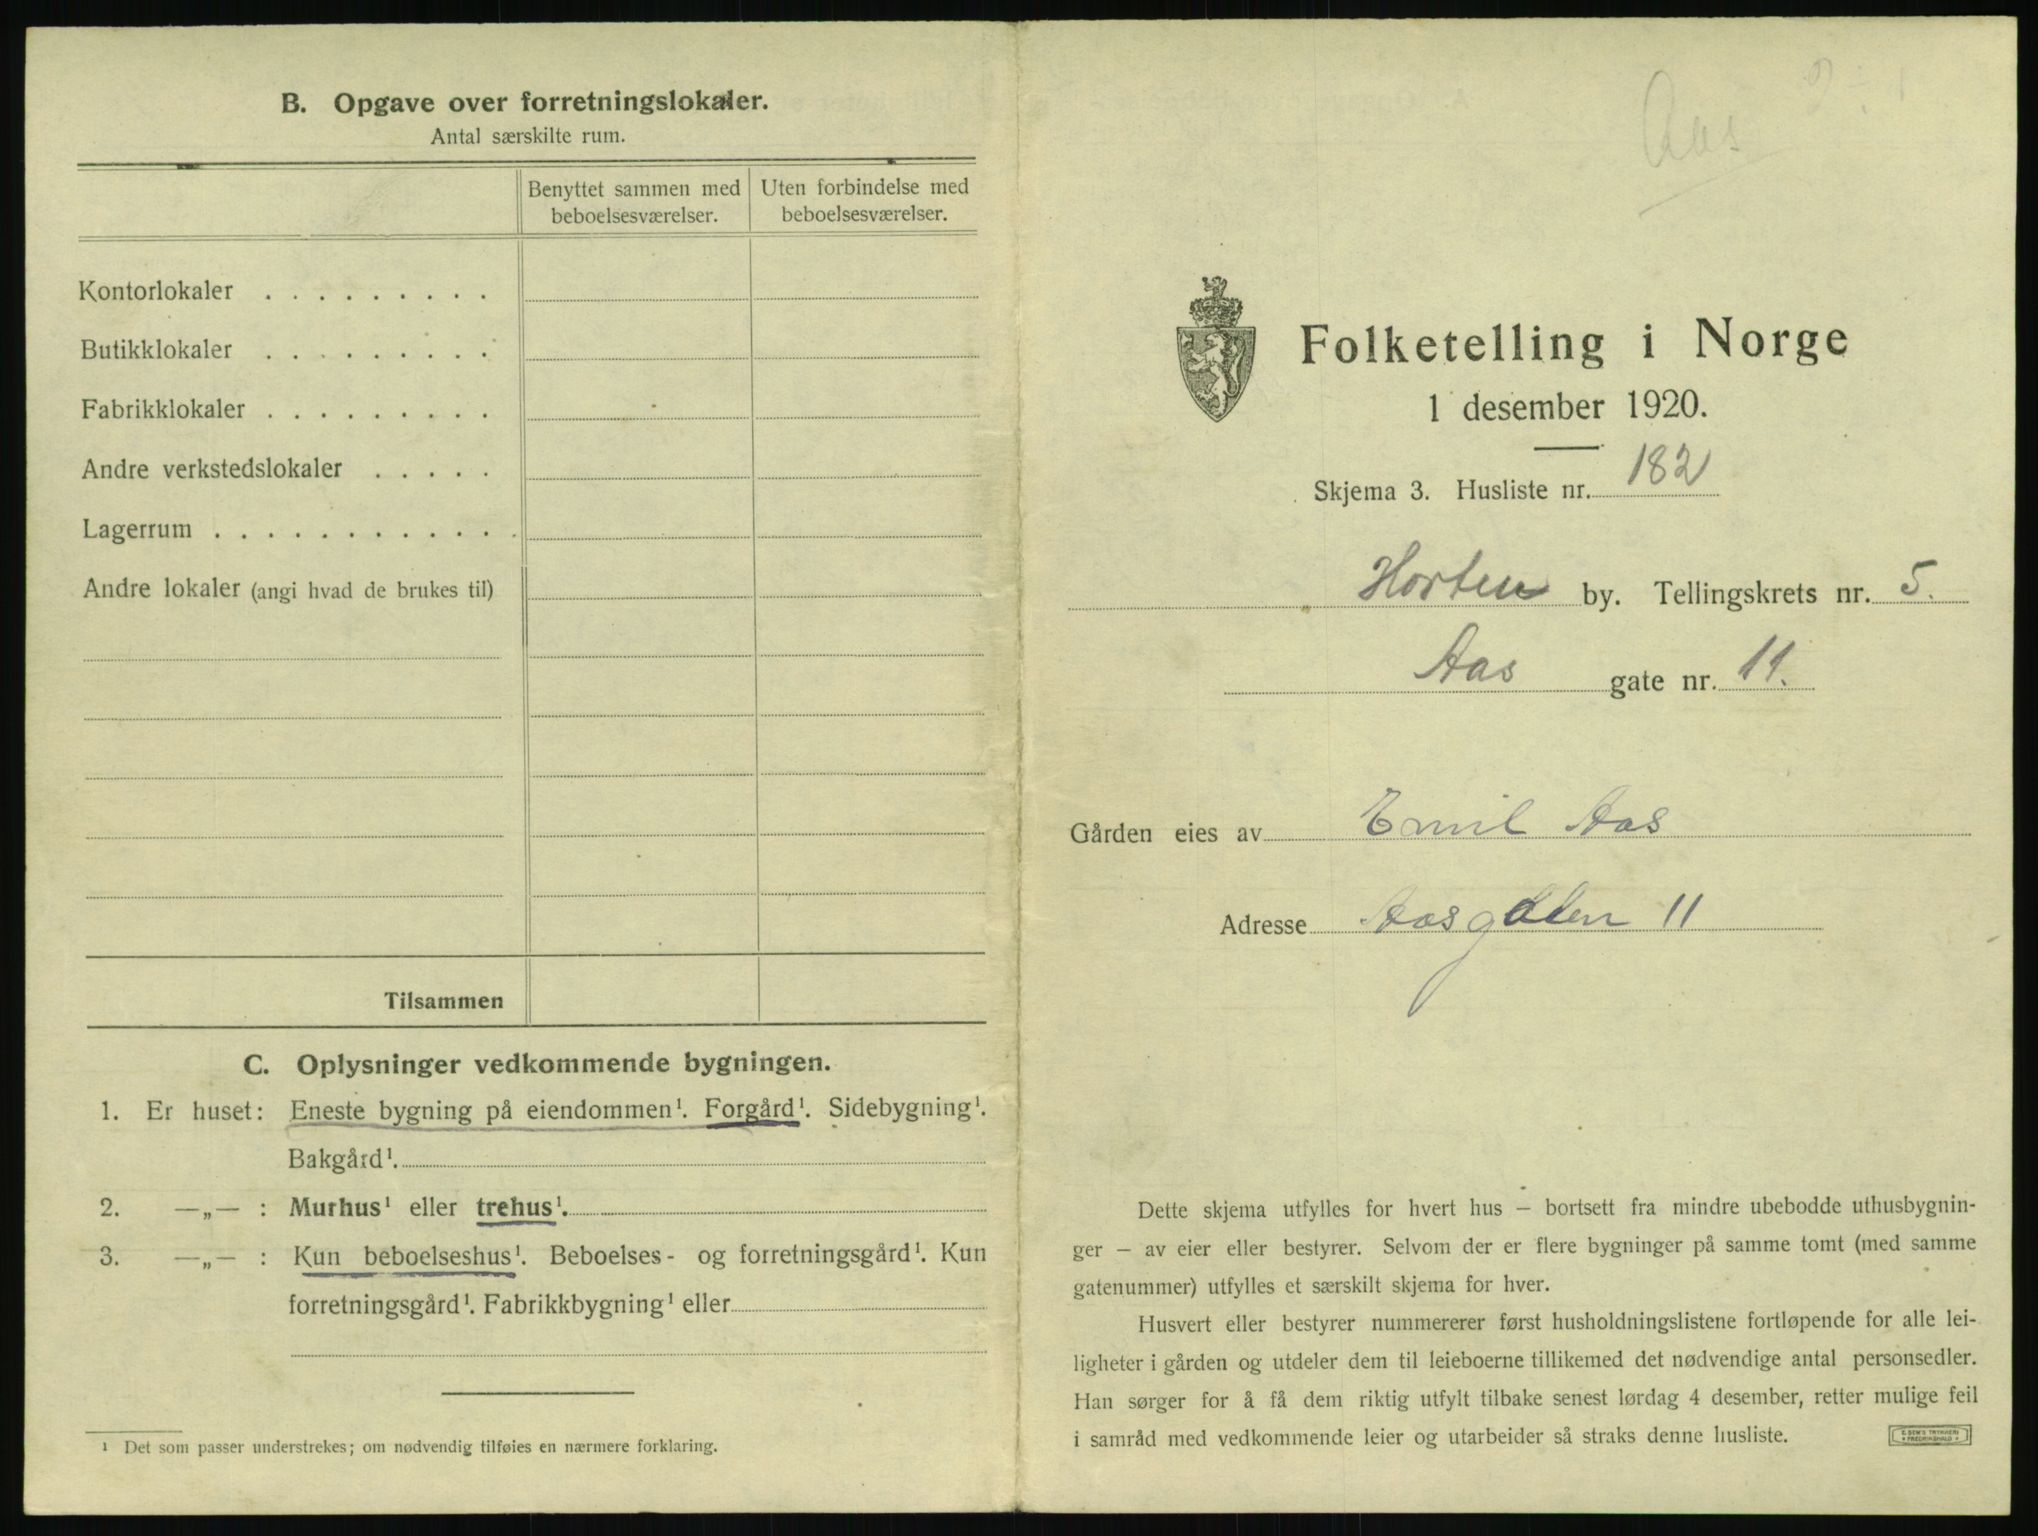 B. Opgave over forretningslokaler.
Antal særskilte rum.
Benyttet sammen med beboelsesværelser.
Uten forbindelse med beboelsesværelser.
Kontorlokaler . . . . . . . . .
Butikklokaler . . . . . . . . .
Fabrikklokaler . . . . . . . . .
Andre verkstedslokaler . . . . .
Lagerrum . . . . . . . . . . . .
Andre lokaler (angi hvad de brukes til)
Tilsammen
C. Oplysninger vedkommende bygningen.
1. Er huset: Eneste bygning på eiendommen¹. Forgård¹. Sidebygning¹.
Bakgård¹.
2. —„— : Murhus¹ eller trehus¹.
3. —„— : Kun beboelseshus¹. Beboelses- og forretningsgård¹. Kun
forretningsgård¹. Fabrikkbygning¹ eller
¹ Det som passer understrekes; om nødvendig tilføies en nærmere forklaring.
Aas
Folketelling i Norge
1 desember 1920.
Skjema 3. Husliste nr. 182
Horten by. Tellingskrets nr. 5.
Aas gate nr. 11.
Gården eies av Emil Aas
Adresse Aasgaten 11
Dette skjema utfylles for hvert hus — bortsett fra mindre ubebodde uthusbygnin-
ger — av eier eller bestyrer. Selvom der er flere bygninger på samme tomt (med samme
gatenummer) utfylles et særskilt skjema for hver.
Husvert eller bestyrer nummererer først husholdningslistene fortløpende for alle lei-
ligheter i gården og utdeler dem til leieboerne tillikemed det nødvendige antal personsedler.
Han sørger for å få dem riktig utfylt tilbake senest lørdag 4 desember, retter mulige feil
i samråd med vedkommende leier og utarbeider så straks denne husliste.